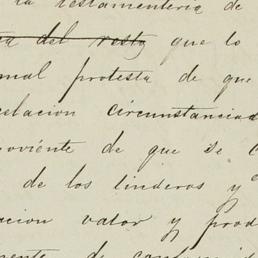 la testamentería de
del resto que lo
mal protesta de que
elacion circunstanciad
oviénte de que se c
de los linderos y
acion valor y prod
mente de